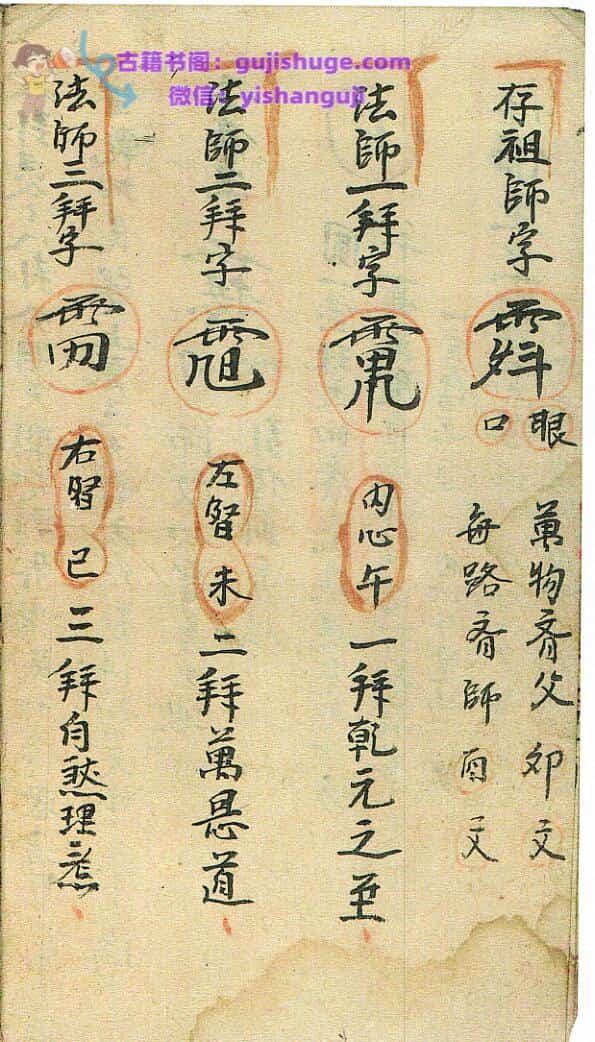 古籍书阁：gujishuge.com
微信：yishanguji
存祖師字
眼
口
萬物父 卯文
每路師 酉文
法師一拜字
內心午
一拜乾元之至
法師二拜字
左 未
二拜萬道
法師三拜字
右 已
三拜自理